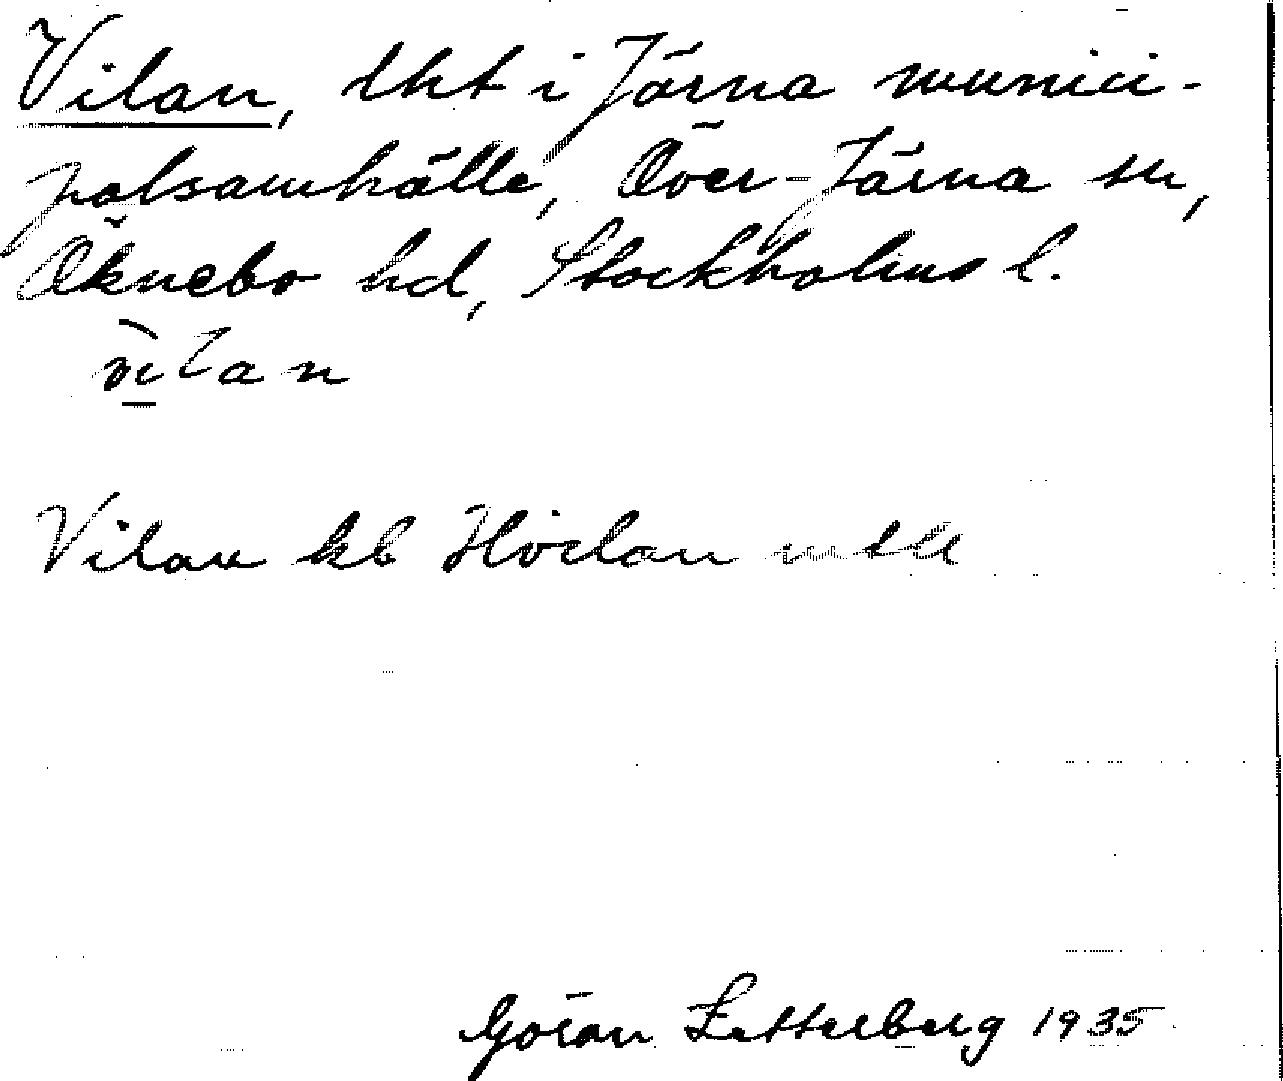 Vilan, lht i Järna munici-
palsamhälle, Över-Järna sn,
Öknebo hd, Stockholms l.
vilan
Vilan kb
Göran Zetterberg 1935